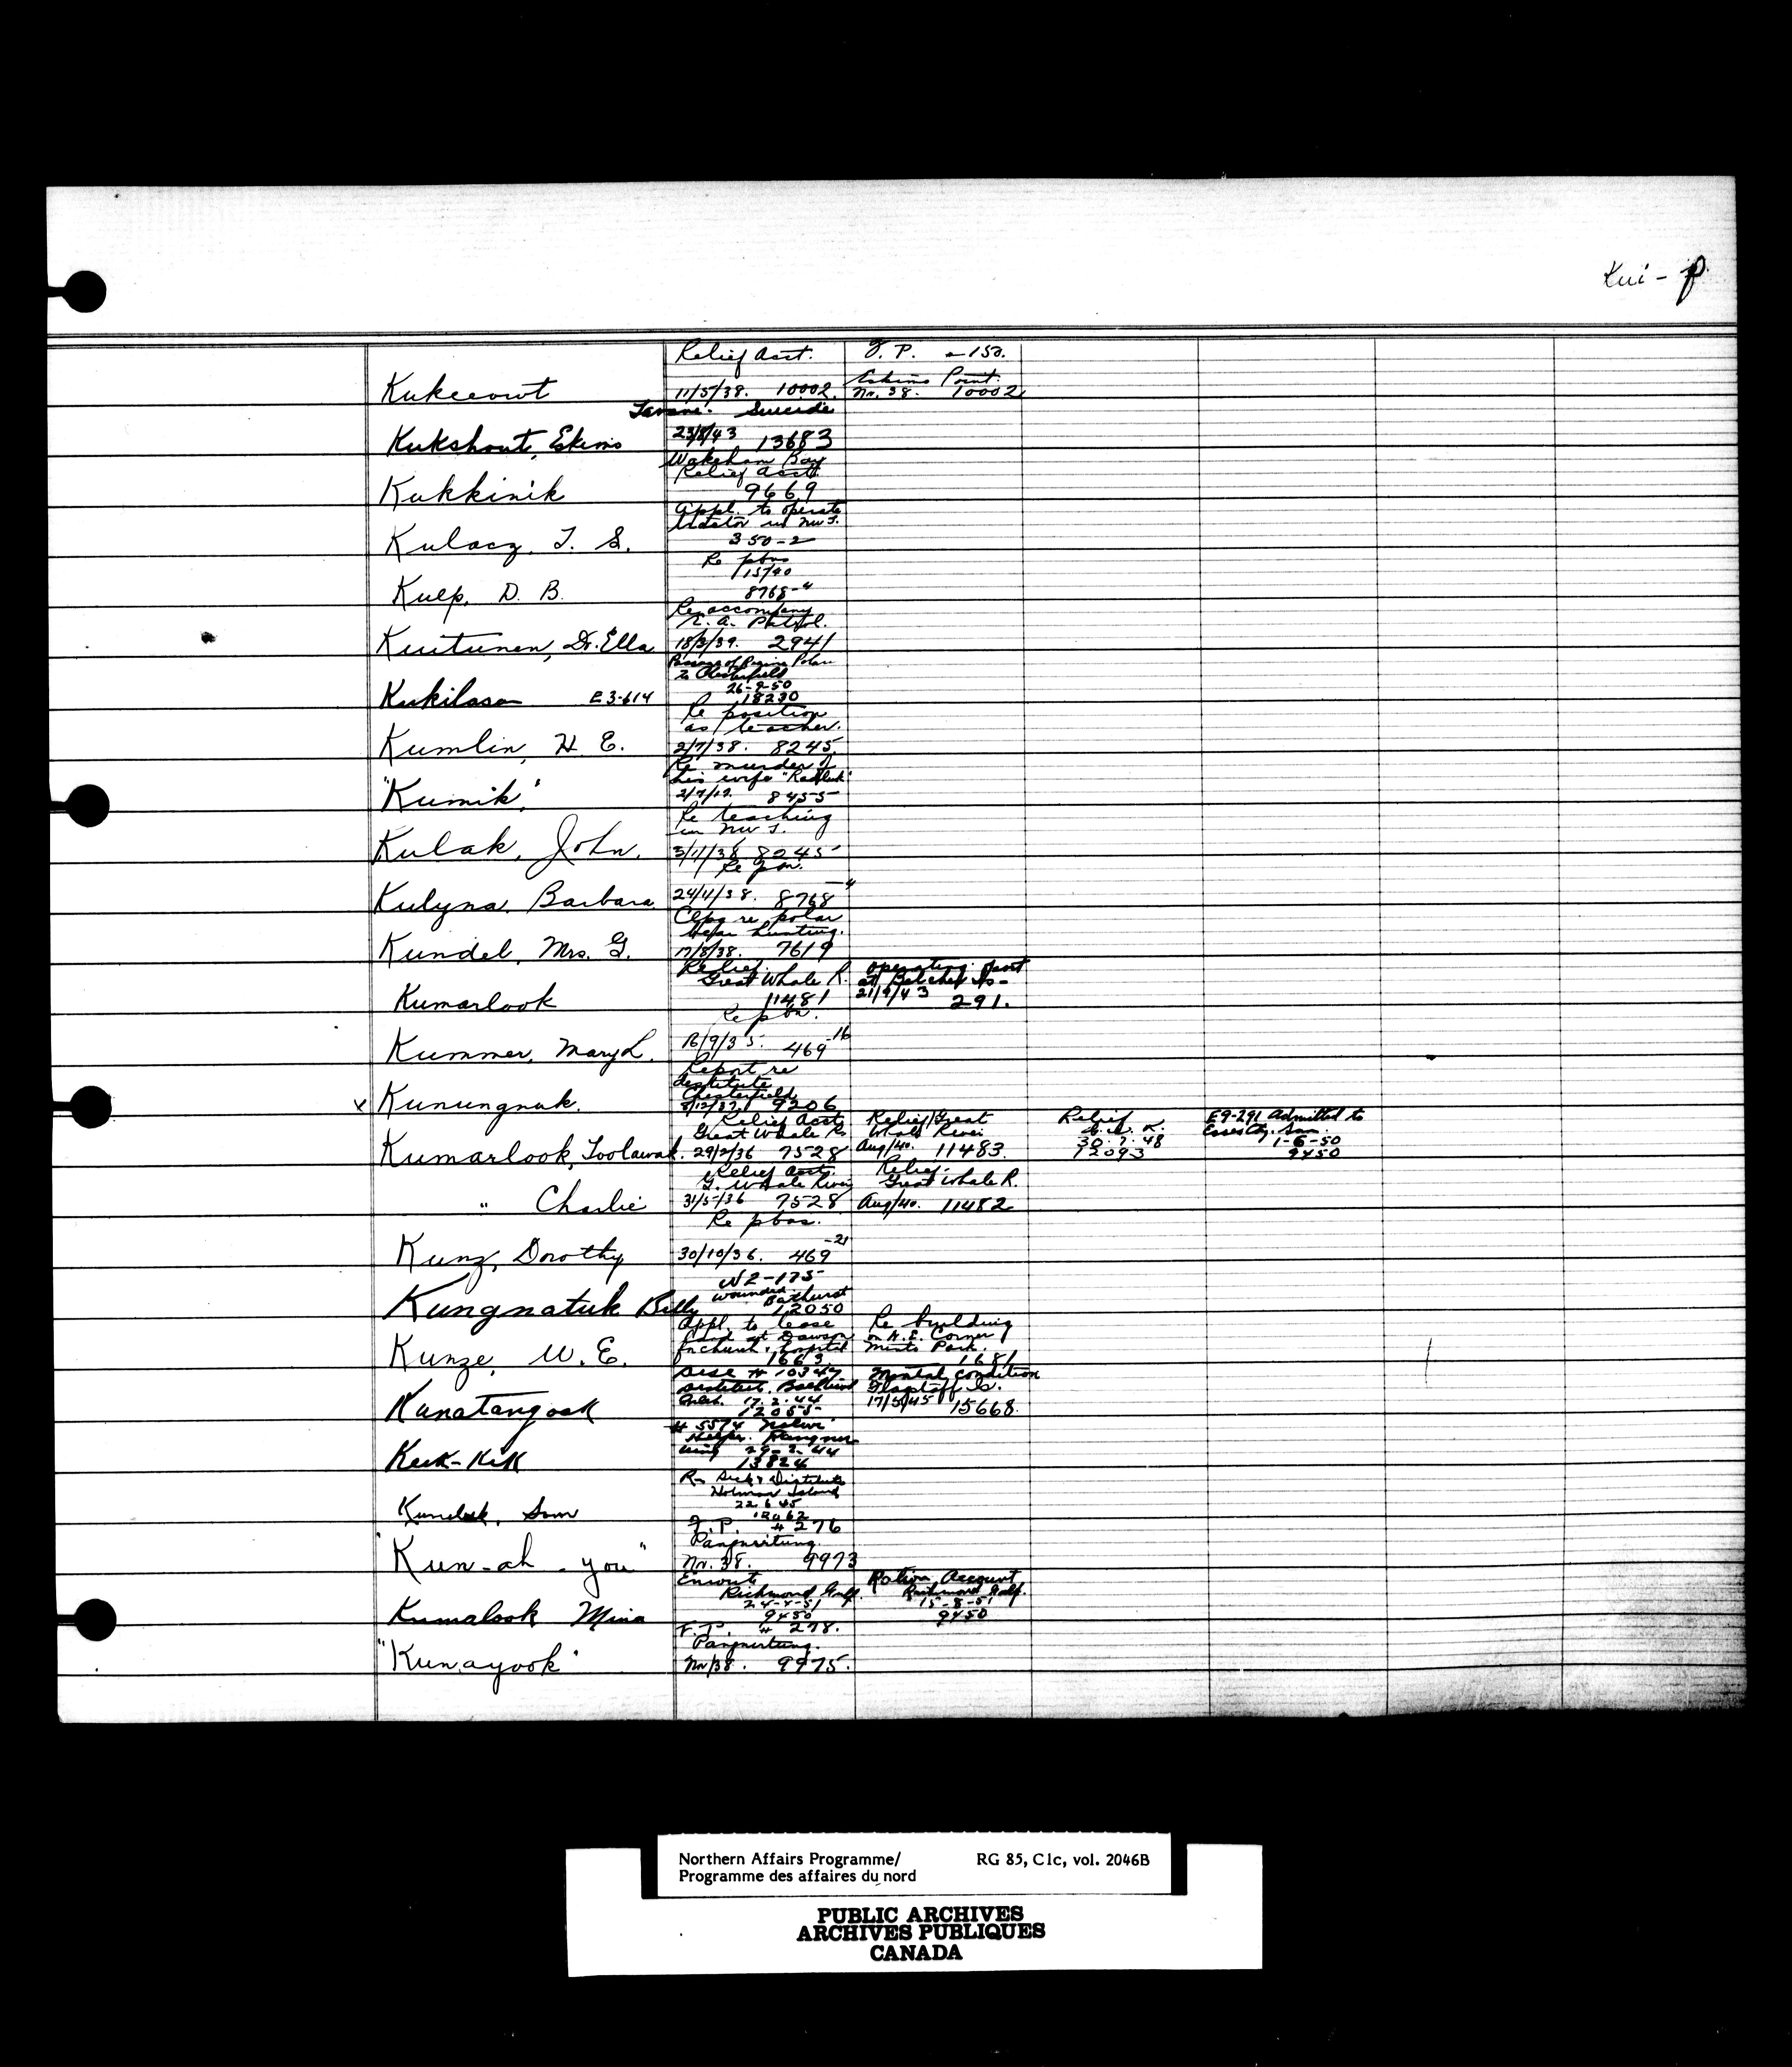 Kui - p
Relief Acct. F. P. - 150.
Eskimo Point.
Kukeeowt 11/5/38. 10002. Nr. 38. 10002
Tavane. Suicide
Kukshout, Eskimo 23/8/43 13683
Wakeham Bay
Relief Acct.
Kukkinik 9669
Appl. to operate
in NWT.
Kulacz, T. S. 350-2
Re pbns
15/40
Kulp, D. B. 8768-4
Re accompany
E. A. Patrol.
Kuitunen, Dr. Ella 18/3/39. 2941
Passage of Regina Polar
to Chesterfield
26-9-50
Kukilasan E3-614 18230
Re position
as teacher.
Kumlin, H. E. 2/7/38. 8245.
Re murder of
his wife
"Kumik," 8455
Re teaching
in NWT.
Kulak, John. 3/11/38 8245
Re pbn.
Kulyna, Barbara 24/11/38. 8768-4
re polar
Bear hunting.
Kundel, Mrs. G. 17/8/38. 7619
Relief. operating post
Great Whale R. at Belcher Is-
Kumarlook 11481 21/9/43 291.
Re pbn.
Kummer, Mary L. 16/9/35. 469-16
Report re
destitute
Chesterfield
x Kunungnuk. 8/12/37. 9206
Relief Acct Relief/Great Relief E9-291 Admitted to
Great Whale R. Whale River Essex Cty. San.
30.7.48 1-6-50
Kumarlook, Toolawak. 29/2/36 7528 Aug/40. 11483. 12093 9450
Relief Acct. Relief.
G. Whale River Great Whale R.
" Charlie 31/5/36 7528 Aug/40. 11482
Re pbns.
Kunz, Dorothy 30/10/36. 469-21
W2-175
wounded
Bathurst
Kungnatuk Billy 12050
Appl. to lease Re building
land at Dawson on N.E. Corner
for church & hospital Minto Park.
Kunze, W. E. 1663 1681
Disc # 10347 Mental condition
Flagstaff Is.
17.2.44
Kunatangoak 12055 17/5/45 15668
# 5574 Native
Helper. Pangnir
tung 29-2-44
Kuk-Kik 13824
Re Sick & Destitute
Holman Island
22.6.45
Sam 12062
F.P. # 276
Pangnirtung.
"Kun-ah-you" Nr. 38. 9973
Enwort Ration Account
Richmond Gulf Richmond Gulf.
15-8-51
Kumalook Mina 9450 9450
F.P. # 278.
Pangnirtung.
"Kunayook" Nr/38. 9975.
Northern Affairs Programme/ RG 85, C1c, vol. 2046B
Programme des affaires du nord
PUBLIC ARCHIVES
ARCHIVES PUBLIQUES
CANADA